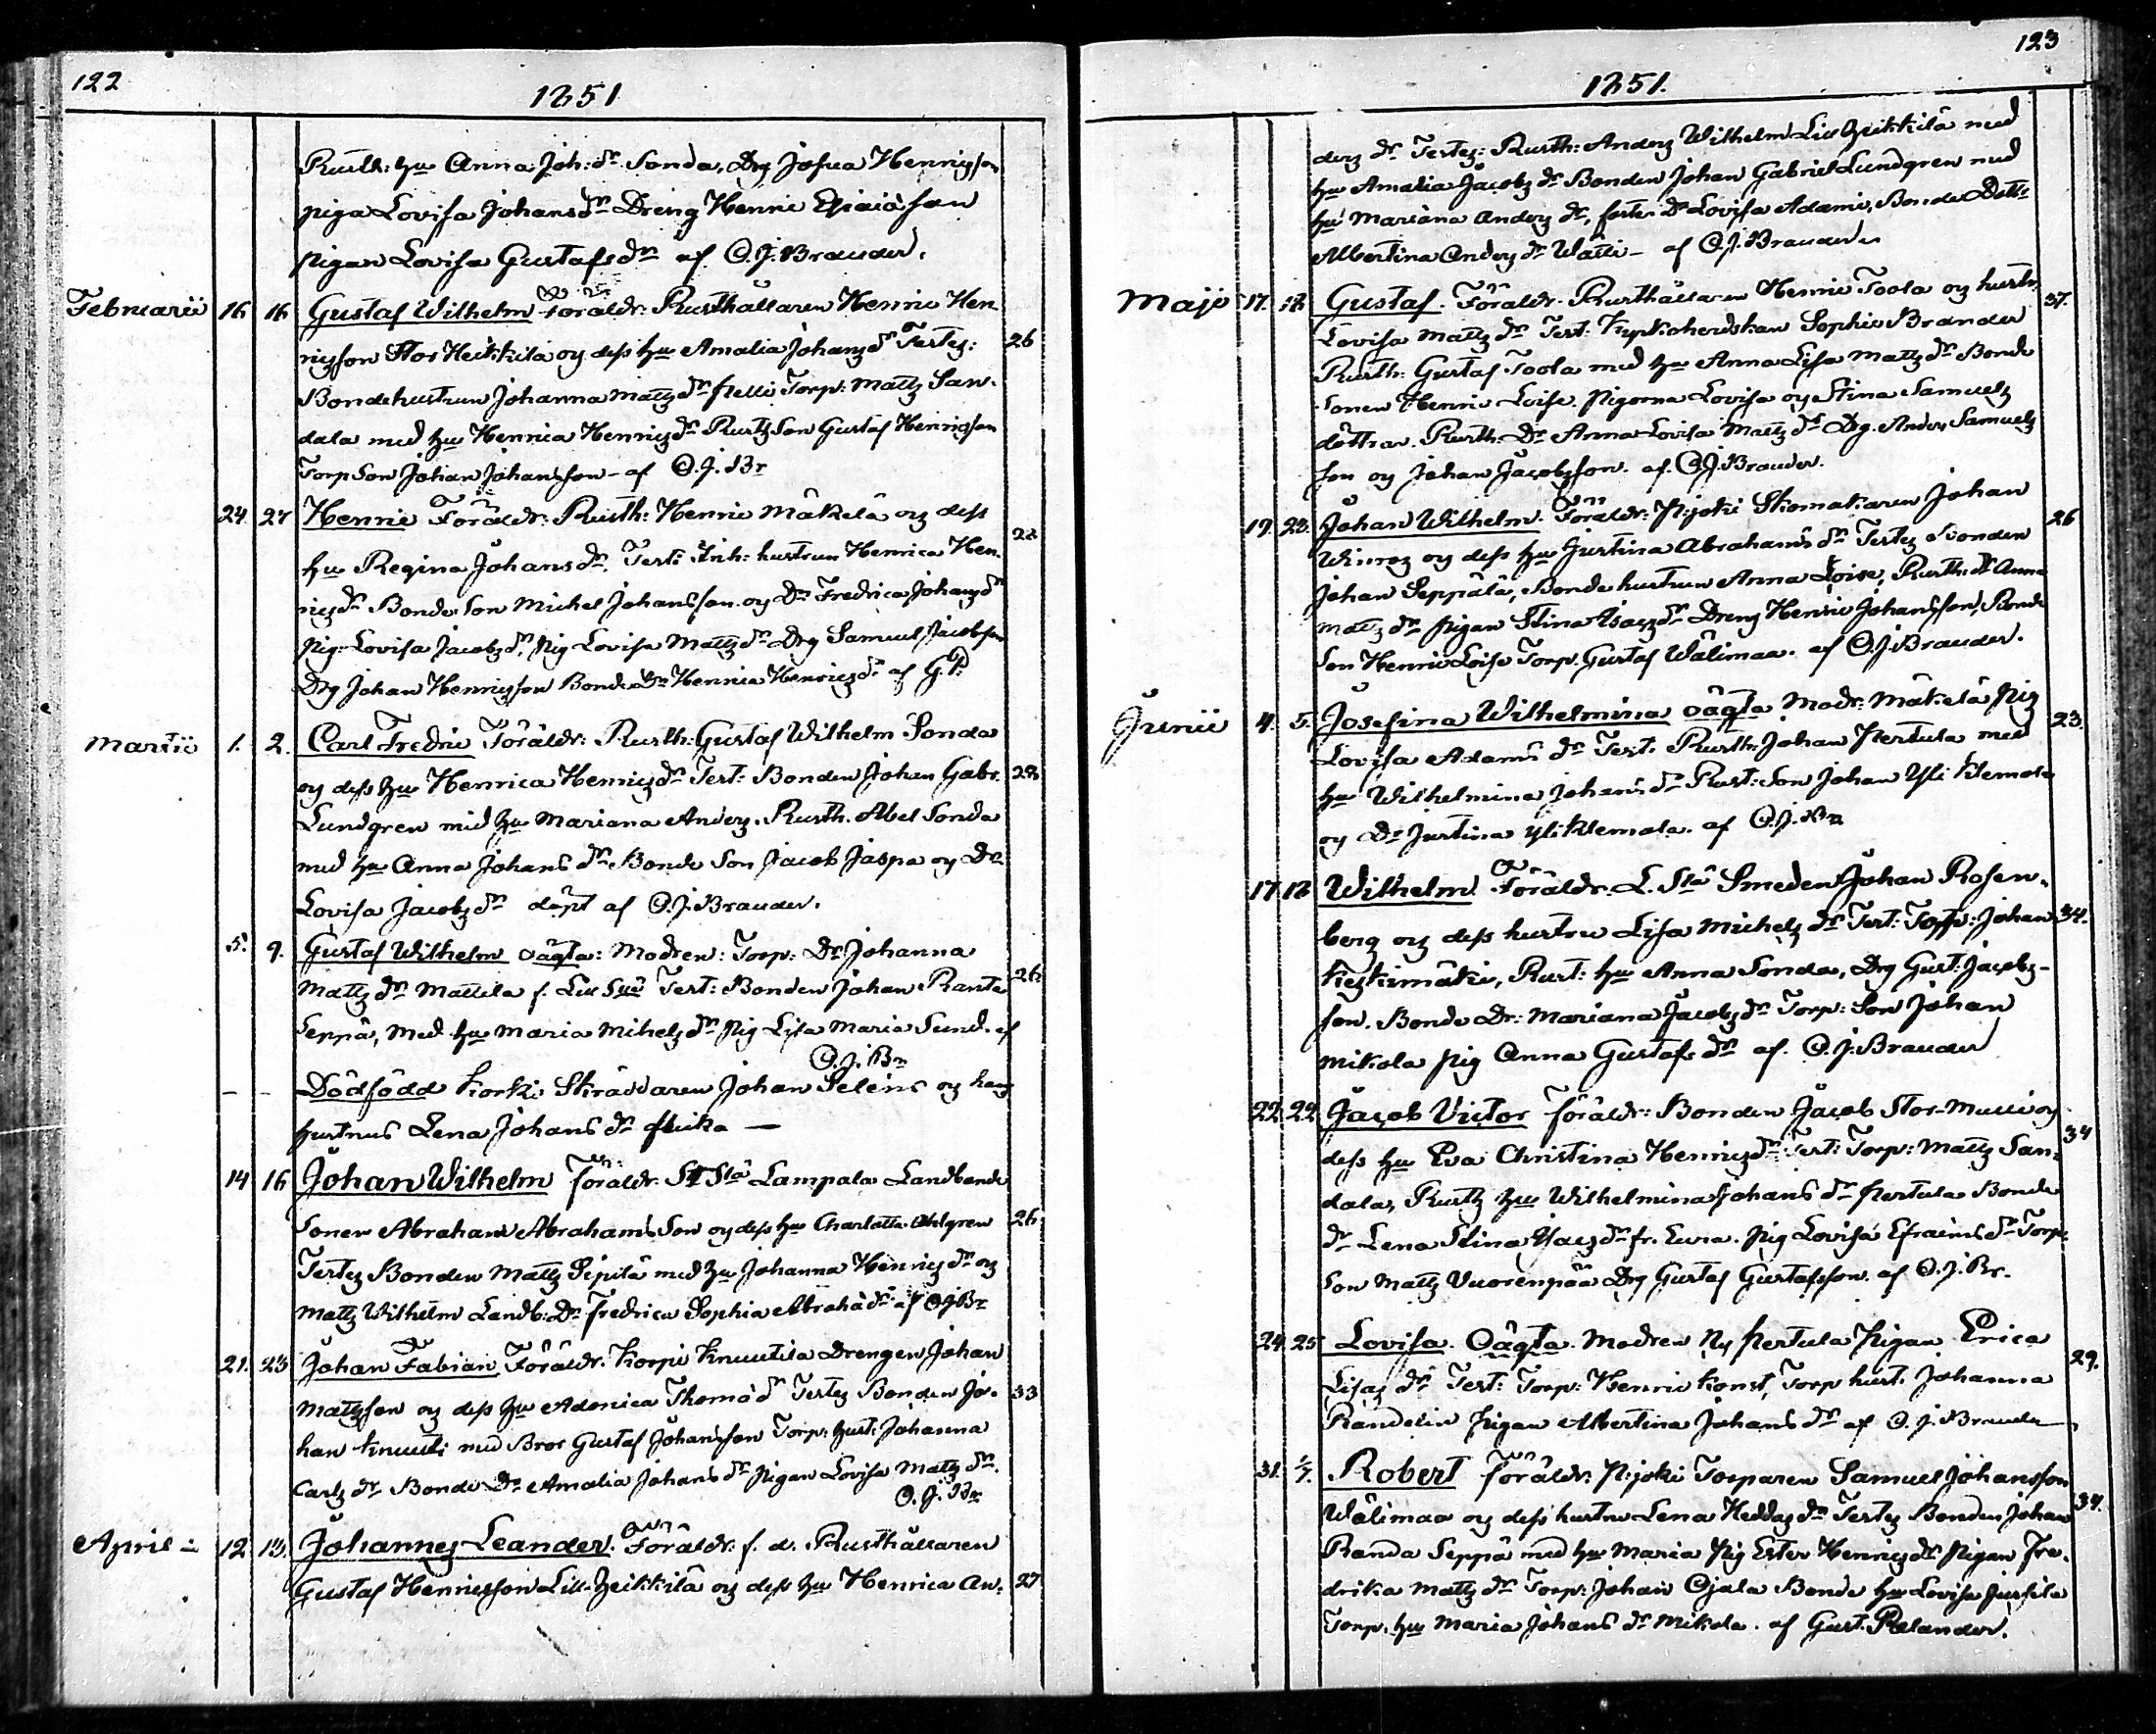 122
1851
Rusth: hu Anna Joh: dr Sonda, Drg Josua Henriqson
piga Lovisa Johans dr Dreng Henric Esaiason
pigan Lovisa Gustafs dr af C.J. Brander.
Februarii 16 16 Gustaf Wilhelm Föräldr: Rusthållaren Henric Hen-
ricsson Stor Heikkilä og dess hu Amalia Johans dr Testes: 26
Bondehustrun Johanna Matts dr Torp: Matts San-
dala med hu Henrica Henrics dr Rusth Son Gustaf Henricsson
Torp Son Johan Johansson - af C.J. Br
24 27 Henric Föräldr: Rusth: Henric Mäkelä og dess
hu Regina Johans dr. Test: Inh: hustrun Henrica Hen-
rics dr Bonde Son Michel Johansson og Dr Fredrica Johans dr
Pig: Lovisa Jacobs dr, Pig Lovisa Matts dr Drg Samuel Jacobsson
Drg Johan Henricsson Bonde Dr Henrica Henrics dr af G. P.
Martii 1. 2. Carl Fredric Föräldr: Rusth: Gustaf Wilhelm Sonda
og dess hu Henrica Henrics dr Test: Bonden Johan Gabr. 28
Lundgren mid hu Mariana Anders. Rusth. Abel Sonda
med hu Anna Johans dr Bonde Son Jacob Jaspa og Dr
Lovisa Jacobs dr döpt af C.J. Brander.
5. 9. Gustaf Wilhelm oägta: Modren: Torp: Dr Johanna
Matts dr Mattila f. Test: Bonden Johan Ranta 26
Seppä, med hu Maria Mihels dr Pig Lisa Maria Sund. af
C.J. Br
- - Dödfödd Korki Skräddaren Johan Selins og hans
hustrus Lena Johans dr flicka -
14 16 Johan Wilhelm föräldr. Lampala Landbonde
Sonen Abraham Abrahams Son og dess hu Charlotta Ahlgren 26
Testes Bonden Matts Sipilä med hu Johanna Henrics dr og
Matts Wilhelm Landb: Dr Fredrica Sophia Abraha dr af C.J. Br
21. 23 Johan Fabian Föräldr. Korpi Knuutila Drengen Johan
Mattsson og dess hu Adonica Thomä dr Testes Bonden Jo- 33
han Knuuti med Bror Gustaf Johansson Torp: hust: Johanna
Carls dr Bonde Dr Amalia Johans dr Pigan Lovisa Matts dr.
C.J. Br
April 12 13. Johannes Leander. Föräldr. f. d. Rusthållaren
Gustaf Henricsson Lill Heikkilä og dess hu Henrica An- 27
123
1851.
ders dr Testes: Rusth: Anders Wilhelm Lill Heikkilä med
hu Amalia Jacobs dr Bonden Johan Gabriel Lundgren med
hu Mariana Anders dr, Lovisa Adami, Bonde Dott
Albertina Anders dr - af C.J. Brander
Maji 17. 18 Gustaf. Föräldr. Rusthållaren Henric Toola og hustr. 37.
Lovisa Matts dr Test: Kyrkoherdskan Sophie Brander
Rusth: Gustaf Toola med hu Anna Lisa Matts dr Bonde
Sonen Henric Loise. Pigorna Lovisa og Stina Samuels
döttrar. Rusth. Dr Anna Lovisa Matts dr Drg. Anders Samuels
son og Johan Jacobsson. af C.J. Brander.
19. 23. Johan Wilhelm. Föräldr: Pjoki Skomakaren Johan 26
og dess hu Justina Abrahams dr Testes Bonden
Johan Seppälä, Bonde hustrun Anna Loise, Rusth: dr Anna
Matts dr Pigan Stina Isacs dr Dreng Henric Johansson, Bonde
Son Henric Loise Torp. Gustaf Wälimaa. af C.J. Brander.
Junii 4. 5. Josefina Wilhelmina oägta Modr: Mäkelä Pig 23.
Lovisa Adams dr Test. Rusth: Johan Pertula med
hu Wilhelmina Johans dr Rust: Son Johan Yli Klemola
og Dr Justina Yli Klemola. af C.J. Br
17 18 Wilhelm Föräldr. L. Stå Smeden Johan Rosen-
berg og dess hustru Lisa Michels dr Test: Johan 34.
Keskimäki, Rust: hu Anna Sonda, Drg Gust: Jacobs-
son. Bonde Dr: Mariana Jacobs dr Torp: Son Johan
Mikola Pig Anna Gustafs dr af. C.J. Brander
22. 22 Jacob Victor föräldr: Bonden Jacob Stor-Muuri og 34
dess hu Eva Christina Henrics dr Test: Torp: Matts San-
dala, Rusth hu Wilhelmina Johans dr Pertula Bonde
dr Lena Stina Isacs dr fr. Eura. Pig Lovisa Efraims dr Torp.
Son Matts Vuorenpää Drg Gustaf Gustafsson. af C.J. Br.
24. 25 Lovisa. Oägta. Modren Ny Pertula Pigan Erica 29.
Lisas dr Test: Torp: Henric Konst, Torp hust. Johanna
Randelin Pigan Albertina Johans dr af C.J. Brander
31. 1/7. Robert föräldr: Pjoki Torparen Samuel Johansson
Wälimaa og dess hustru Lena Heddas dr Testes Bonden Johan 34.
Randa Seppä med hu Maria Pig Ester Henrics dr Pigan Fre-
drika Matts dr Torp: Johan Ojala Bonde hu Lovisa Jussila
Torp. hu Maria Johans dr Mikola. af Gust. Relander.